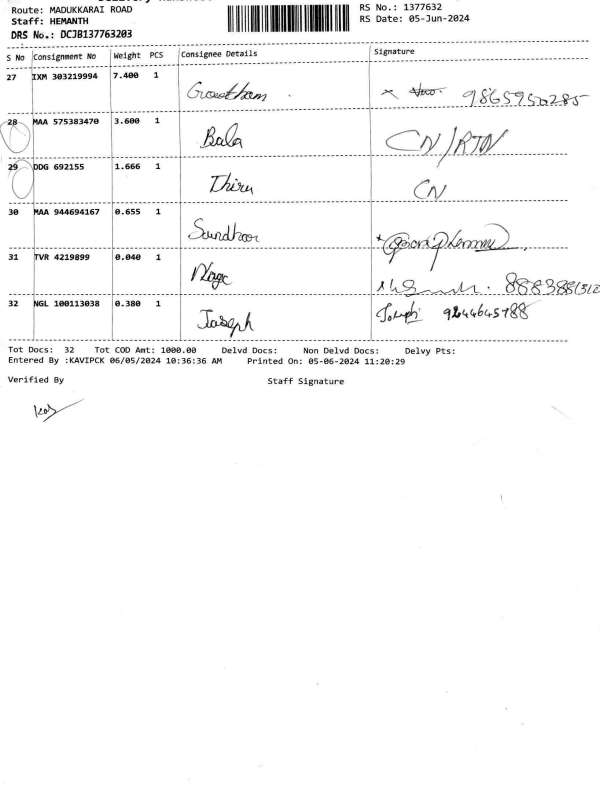 Route: MADUKKARAI ROAD
Staff: HEMANTH
DRS No.: DCJB137763203
RS No.: 1377632
RS Date: 05-Jun-2024
S No Consignment No Weight PCS Consignee Details Signature
27 IXM 303219994 7.400 1 Gowtham 9865950285
28 MAA 575383470 3.600 1 Bala CN/RTN
29 DDG 692155 1.666 1 Thiru CN
30 MAA 944694167 0.655 1
31 TVR 4219899 0.040 1
32 NGL 100113038 0.380 1 Joseph 9244645788
Tot Docs: 32 Tot COD Amt: 1000.00 Delvd Docs: Non Delvd Docs: Delvy Pts:
Entered By :KAVIPCK 06/05/2024 10:36:36 AM Printed On: 05-06-2024 11:20:29
Verified By Staff Signature